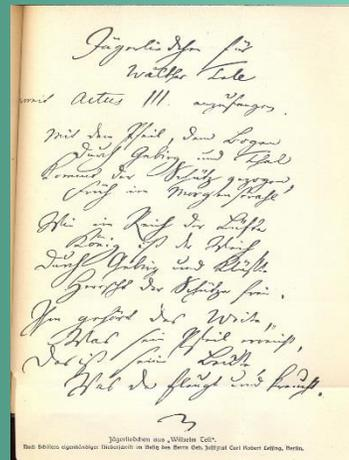 Jägerliedchen für
Walther Tell
womit Actus III. anzufangen.
Mit dem Pfeil, dem Bogen
Durch Gebirg und Thal
Kommt der Schütz gezogen
Früh im Morgenstrahl
Wie im Reich der Lüfte
König ist der Weih
Durch Gebirg und Klüfte
Herrscht der Schütze frei.
Ihm gehört das Weite,
Was sein Pfeil erreicht,
Das ist seine Beute
Was da fleugt und kreucht.
Jägerliedchen aus „Wilhelm Tell“.
Nach Schillers eigenhändiger Niederschrift im Besitz des Herrn Geh. Justizrat Carl Robert Lessing, Berlin.